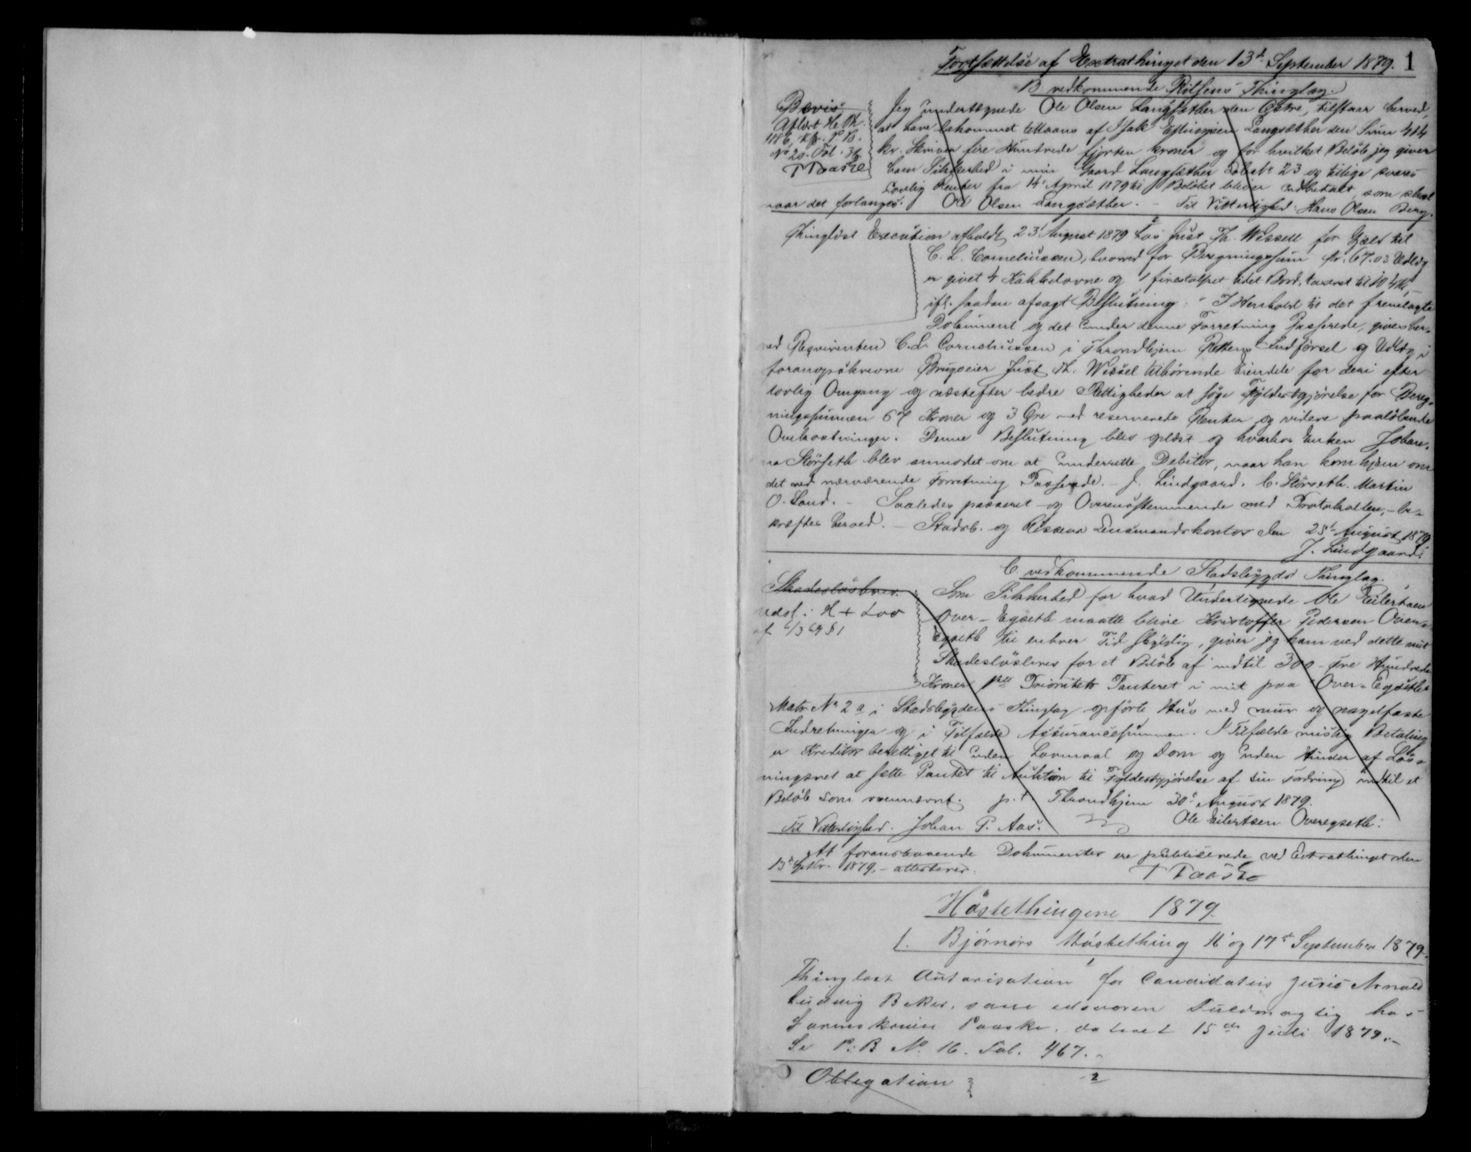 Fortsættelse af Extrathinget den 13de September 1879. 1
B vedkommende Rissens Thinglag.
Bevis
Aflæst H. Th.
No 20. Fol.
T Paaske
Jeg undertegnede Ole Olsen Langsæther den Østre, tilstaar herved,
at have bekommet tillaans af Isak Langsæther den Sum 414
kr. Skriver fire Hundrede fjorten kroner og for hvilket Beløb jeg giver
ham Sikkerhed i min Gaard Langsæther No 23 og tillige svares
lovlig Renter fra 14 April 1879 til Beløbet bliver indbetalt som skeer
naar det forlanges. Ole Olsen Langsæther. – Til Vitterlighed: Hans Olsen Berg.
Thinglæst Execution afholdt 23 August 1879 hos Just Th. Wissell for Gjæld til
C. L. Corneliussen, hvorved for Beregningssum Kr. 67.03 Udlæg
er givet i 4 Kakkelovne og 1 firestolpet Bord, taxeret til
ifl. saadan afsagt Beslutning: "I Henhold til det fremlagte
Dokument og det under denne Forretning Passerede, gives her-
ved Reqvirenten C. L. Corneliussen i Throndhjem Rettens Indførsel og Udlæg i
foranopskrevne Brugseier Just Th. Wissel tilhørende Eiendele for deri efter
lovlig Omgang og næstefter bedre Rettigheder at søge Fyldestgjørelse for Bereg-
ningssummen 67 Kroner og 3 Øre med reserverede Renter og videre paaløbende
Omkostninger. Denne Beslutning blev oplæst og hvorhos Enken Johan-
na Størseth blev anmodet om at underrette Debitor, naar han kom hjem om
det ved nærværende Forretning Passerede. – J. Lindgaard. C. Størseth. Martin
O. Sand. – Saaledes passeret og Overensstemmende med Protokollen, – be-
kræftes herved. – Stadsb. og Rissens Lensmandskontor den 25de August 1879
J. Lindgaard.
C. vedkommende Stadsbygds Thinglag.
Skadesløsbrev
udsl. i H + Lov
Som Sikkerhed for hvad Undertegnede Ole Eilertsen
Over-Egseth maatte blive Kristoffer Pedersen Over-
Egseth til enhver Tid skyldig, giver jeg ham ved dette mit
Skadesløsbrev for et Beløb af indtil 300 – tre Hundrede
Kroner Prioritets Panteret i mit paa Over-Egseth
Matr No 2 a i Stadsbygdens Thinglag opførte Hus med mur og nagelfaste
Indretninger og i Tilfælde Assurancesummen. I Tilfælde mislig Betaling
er Kreditor berettiget til uden Lovmaal og Dom og uden Hinder af Løs-
ningsret at sætte Pantet til Auktion til Fyldestgjørelse af sin Fordring indtil et
Beløb som ovennævnt. p.t. Throndhjem 30te August 1879.
Til Vitterlighed. Johan P. Aas. Ole Eilertsen Overegseth.
At foranstaaende Dokumenter ere publicerede ved Extrathinget den
13de Septbr. 1879, – attesteres. T Paaske
Høstethingene 1879.
1. Bjørnørs Høstething 16 og 17de September 1879.
Thinglæst Autorisation for Candidatus juris Arnold
Ludvig Beker, som edsvoren Fuldmægtig hos
Sorenskriver Paaske, dateret 15de Juli 1879. –
Se P. B No. 16. Fol. 467. –
Obligation 2